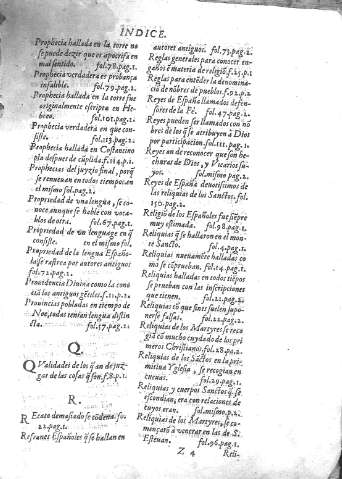 INDICE.
Prophecia hallada en la torre no
se puede dezir que es apocrifa en
mal sentido. fol.78.pag.1.
Prophecia verdadera es probança
infalible. fol.79.pag.1.
Prophecia hallada en la torre fue
originalmente escripta en He-
breo. fol.101.pag.1.
Prophecia verdadera en que con-
siste. fol.113.pag.2.
Prophecia hallada en Costantino
pla despues de cũplida.f.114.p.1.
Prophecias del juyzio final, porq̃
se renueuan en todos tiempos.en
el mismo fol.pag.1.
Propriedad de una lengua, se co-
noce aunque se hable con voca-
blos de otra. fol.67.pag.1.
Propriedad de un lenguage en q̃
consiste. en el mismo fol.
Propriedad de la lengua Españo-
la se rastrea por autores antiguos
fol.72.pag.1.
Prouidencia Diuina como la cono
ciã los antiguos gẽtiles.f.11.p.1.
Prouincias pobladas en tiempo de
Noe, todas tenian lengua distin
cta. fol.17.pag.1.
Q.
QValidades de los q̃ an de juz-
gar de las cosas q̃ son.f.8.p.1.
R.
REcato demasiado se cõdena.fo.
22.pag.1.
Refranes Españoles q̃ se hallan en
autores antiguos. fol.73.pag.2.
Reglas generales para conocer en-
gaños ẽ materia de religiõ.f.25.p.1
Reglas para entẽder la denomina-
ciõ de nõbres de pueblos.f.92.p.2
Reyes de España llamados defen-
sores de la Fè. fol.47.pag.1.
Reyes pueden ser llamados con nõ
bres de los q̃ se atribuyen à Dios
por participacion.fol.111.pag.1.
Reyes an de reconocer que son he-
churas de Dios, y Vicarios su-
yos. fol.mismo pag.2.
Reyes de España deuotissimos de
las reliquias de los Sanctos.fol.
150.pag.2.
Religiõ de los Españoles fue siẽpre
muy estimada. fol.98.pag.1.
Reliquias q̃ se hallaron en el mon-
te Sancto. fol.4.pag.1.
Reliquias nueuamẽte halladas co
mo se cõprueban. fol.14.pag.1.
Reliquias halladas en todos tiẽpos
se prueban con las inscripciones
que tienen. fol.21.pag.2.
Reliquias cõ que fines suelen supo-
nerse falsas. fol.22.pag.2.
Reliquias de los Martyres se reco
giã cõ mucho cuydado de los pri
meros Christianos.fol.28.pa.2.
Reliquias de los Sãctos en la pri-
mitiua Yglesia, se recogian en
cueuas. fol.29.pag.1.
Reliquias y cuerpos Sanctos q̃ se
escondian, era con relaciones de
cuyos eran. fol.mismo.p.2.
Reliquias de los Martyres, se co-
mençarõ à venerar en las de S.
Esteuan. fol.96.pag.1.
Z 4 Reli-